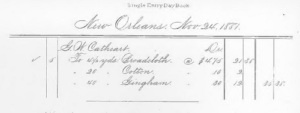 Single Entry Day Book
New Orleans, Nov 24, 1877.
G. W. Cathcart, Dr.
1 5 To 4½ yds Broadcloth @ $4.75 21 38
" 20 " Cotton " 10 2
" 40 " Gingham " 20 13